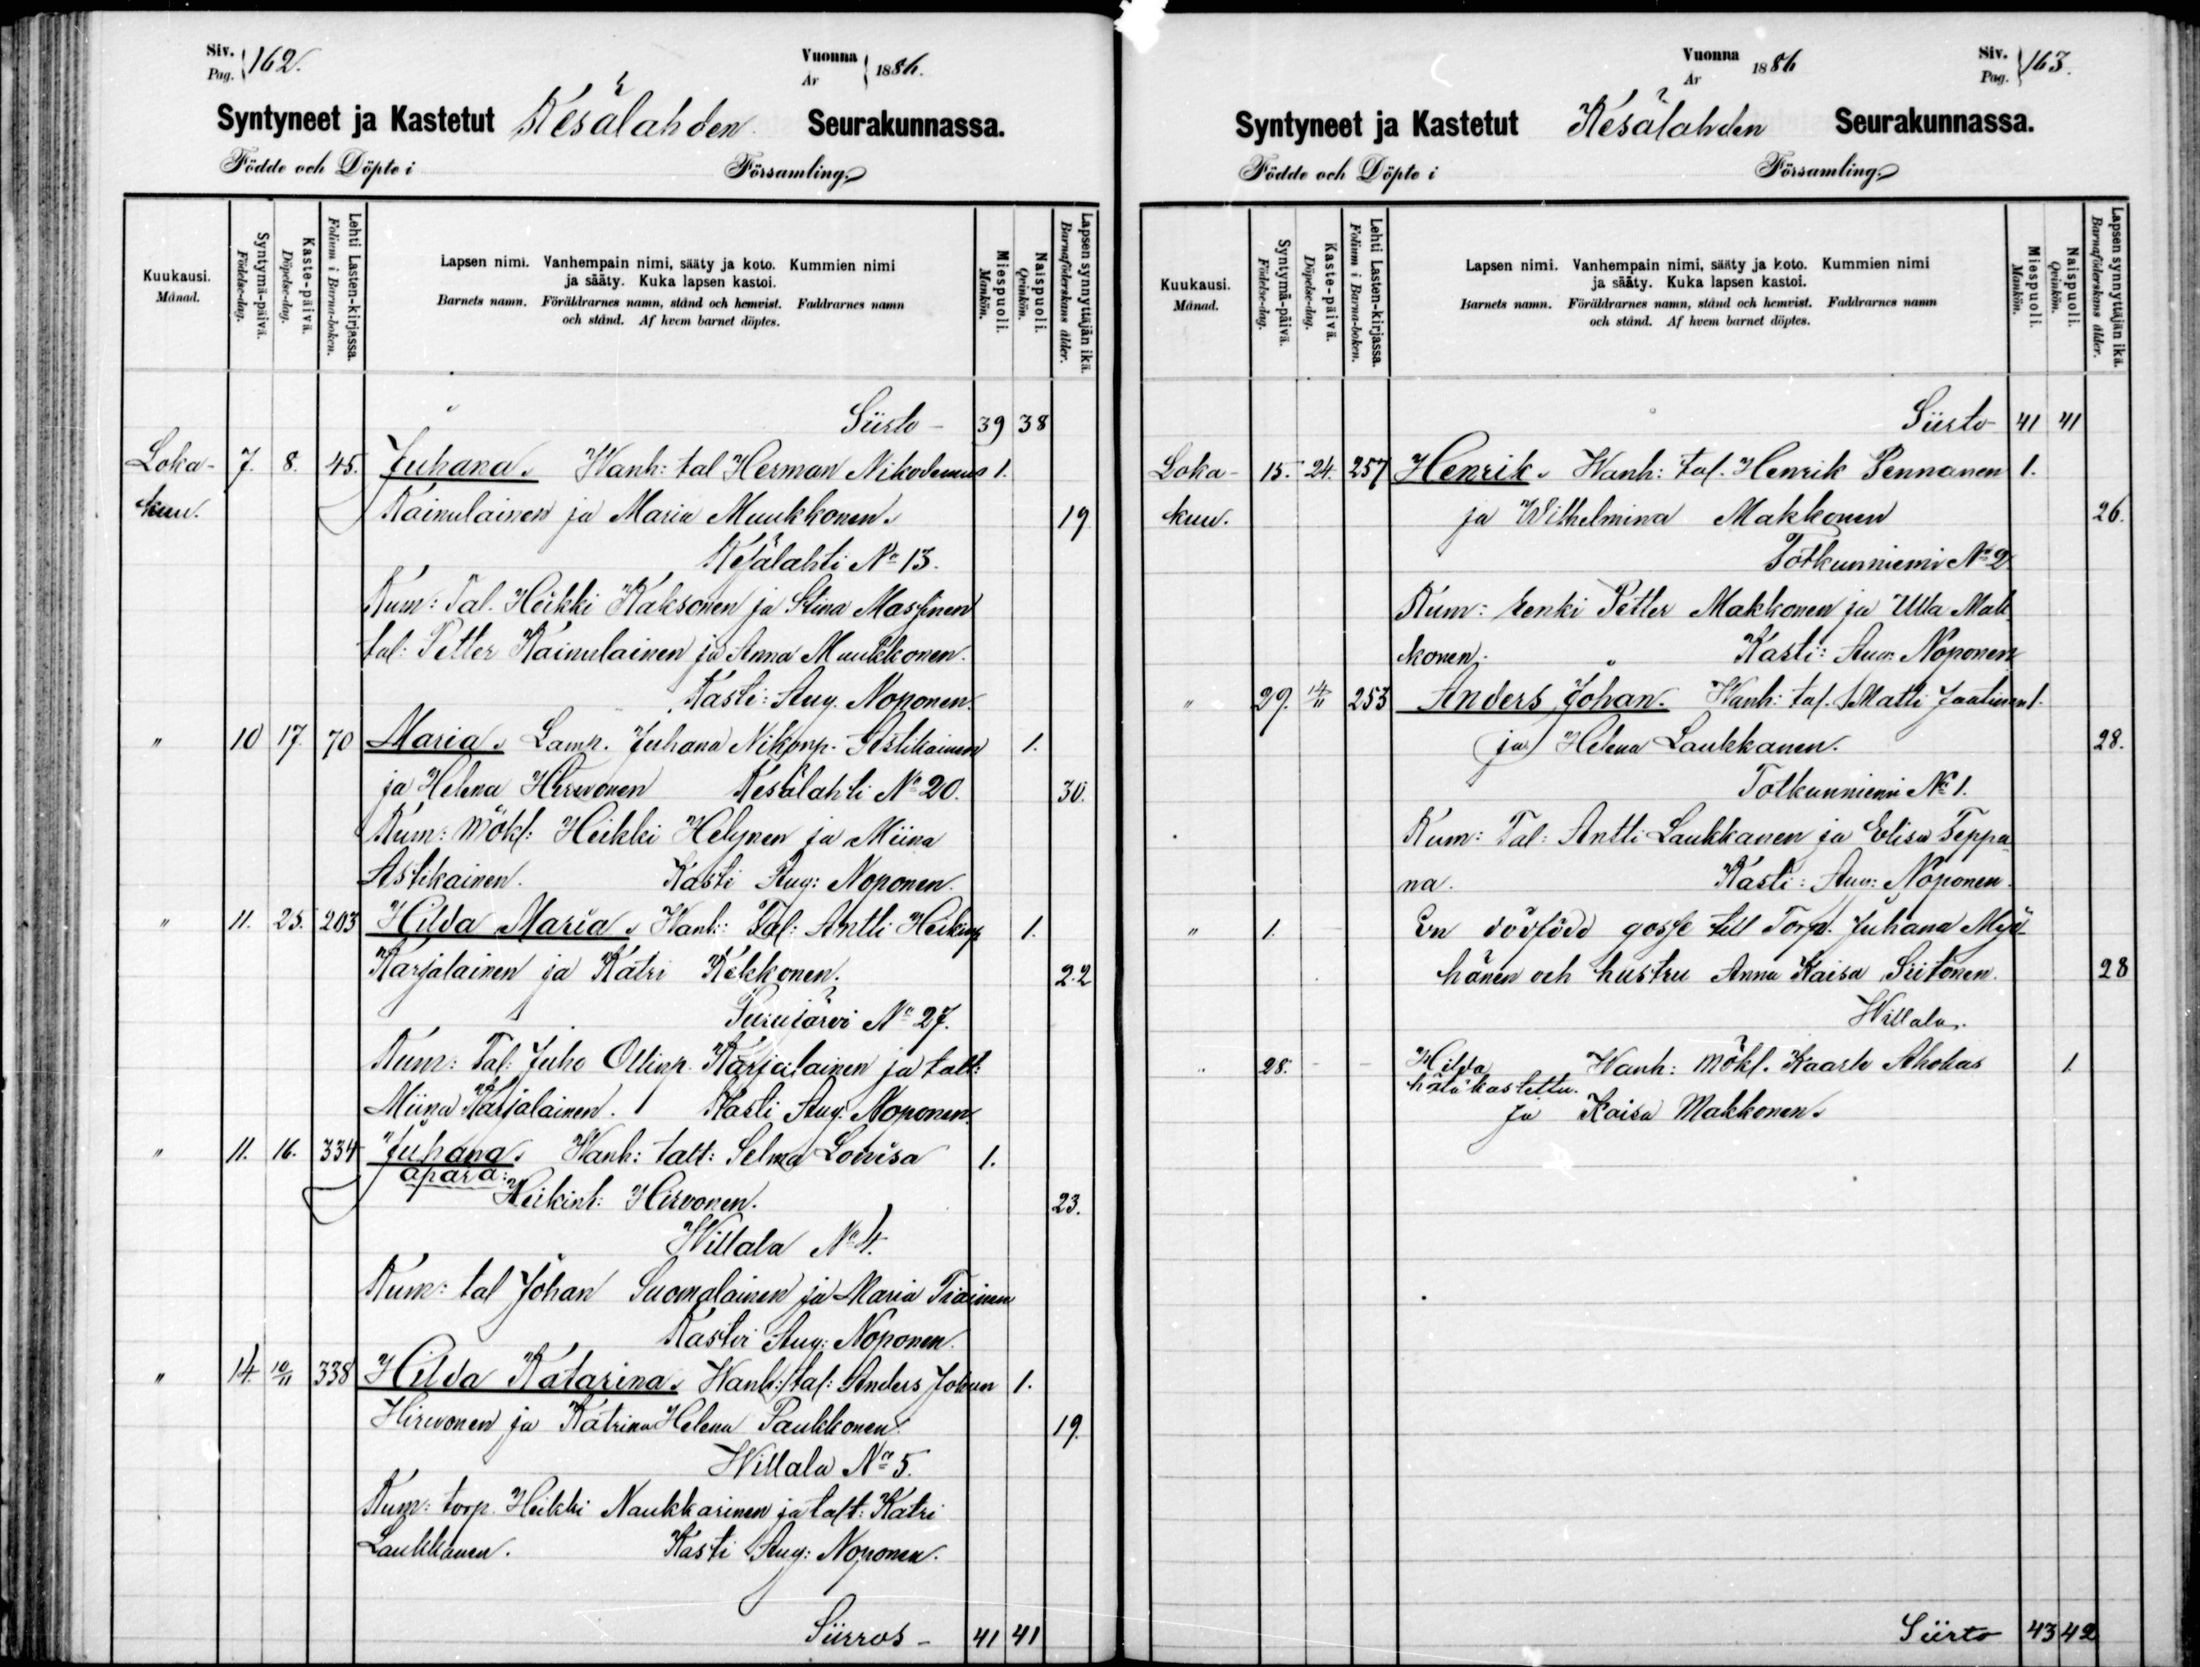 Siv. Pag. 162.
Vuonna År 1886.
Syntyneet ja Kastetut Kesälahden Seurakunnassa.
Födde och Döpte i Församling.
Kuukausi. Månad.
Syntymä-päivä. Födelse-dag.
Kaste-päivä. Döpelse-dag.
Lehti Lasten-kirjassa. Folium i Barna-boken.
Lapsen nimi. Vanhempain nimi, sääty ja koto. Kummien nimi
ja sääty. Kuka lapsen kastoi.
Barnets namn. Föräldrarnes namn, stånd och hemvist. Faddrarnes namn
och stånd. Af hvem barnet döptes.
Miespuoli. Mankön.
Naispuoli. Qvinkön.
Lapsen synnyttäjän ikä. Barnaföderskans ålder.
Siirto - 39 38
Loka- 7. 8. 45. Juhana. Wanh: tal Herman Nikodemus 1.
kuu. Kainulainen ja Maria Muukkonen. 19
Kesälahti No 13.
Kum: Tal. Heikki Kaksonen ja Stina Massinen
tal: Petter Kainulainen ja Anna Muukkonen.
Kasti: Aug. Noponen.
" 10 17. 70 Maria. Lamp. Juhana Nikonp. Astikainen 1.
ja Helena Hirwonen Kesälahti No 20. 30.
Kum: Mökl: Heikki Helynen ja Miina
Astikainen. Kasti Aug: Noponen.
" 11. 25. 203 Hilda Maria. Wanh: Tal: Antti Heikinp 1.
Karjalainen ja Katri Kekkonen. 22
Purujärvi No 27.
Kum: Tal: Juho Ollinp. Karjalainen ja talt:
Miina Karjalainen. Kasti Aug. Noponen.
" 11. 16. 334 Juhana. Wanh: talt: Selma Lovisa 1.
äpärä: Heikint: Hirvonen. 23.
Willala No 4.
Kum: tal Johan Suomalainen ja Maria Tiainen
Kastoi Aug: Noponen.
" 14. 10/11 338 Hilda Katarina. Wanh: tal: Anders Johan 1.
Hirwonen ja Katrina Helena Paukkonen. 19.
Willala No 5.
Kum: torp. Heikki Naukkarinen ja talt: Katri
Laukkanen. Kasti Aug: Noponen.
Siirros - 41 41
Vuonna År 1886
Siv. Pag. 163.
Syntyneet ja Kastetut Kesälahden Seurakunnassa.
Födde och Döpte i Församling.
Kuukausi. Månad.
Syntymä-päivä. Födelse-dag.
Kaste-päivä. Döpelse-dag.
Lehti Lasten-kirjassa. Folium i Barna-boken.
Lapsen nimi. Vanhempain nimi, sääty ja koto. Kummien nimi
ja sääty. Kuka lapsen kastoi.
Barnets namn. Föräldrarnes namn, stånd och hemvist. Faddrarnes namn
och stånd. Af hvem barnet döptes.
Miespuoli. Mankön.
Naispuoli. Qvinkön.
Lapsen synnyttäjän ikä. Barnaföderskans ålder.
Siirto 41 41
Loka- 15. 24. 257 Henrik. Wanh: tal. Henrik Pennanen 1.
kuu. ja Wilhelmina Makkonen 26.
Totkunniemi No 2
Kum: renki Petter Makkonen ja Ulla Mak
konen. Kasti: Aug: Noponen
" 29. 14/11 253 Anders Johan. Wanh: tal. Matti Jaatinen 1.
ja Helena Laukkanen. 28.
Totkunniemi No 1.
Kum: Tal: Antti Laukkanen ja Elisa Teppa
na. Kasti: Aug: Noponen.
" 1. En dödfödd gosse till Torp. Juhana Myö
hänen och hustru Anna Kaisa Siitonen. 28
Willala.
" 28. - - Hilda Wanh: Mökl. Kaarlo Ahokas 1.
hätäkastettu.
ja Kaisa Makkonen.
Siirto 43 42